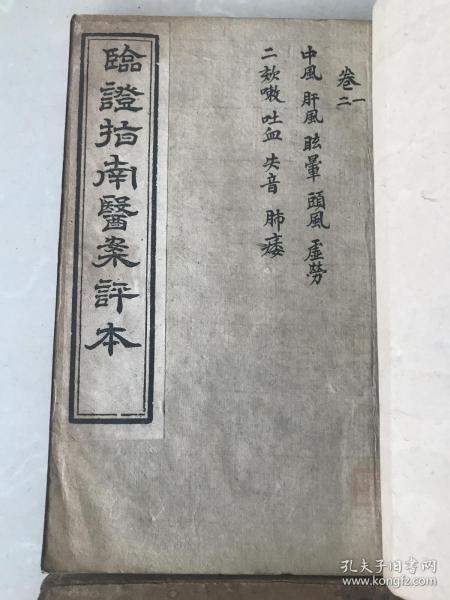 卷一二
中風 肝風 眩暈 頭風 虛勞
二欬嗽 吐血 失音 肺痿
臨證指南醫案評本
孔夫子旧书网
www.kongfz.com